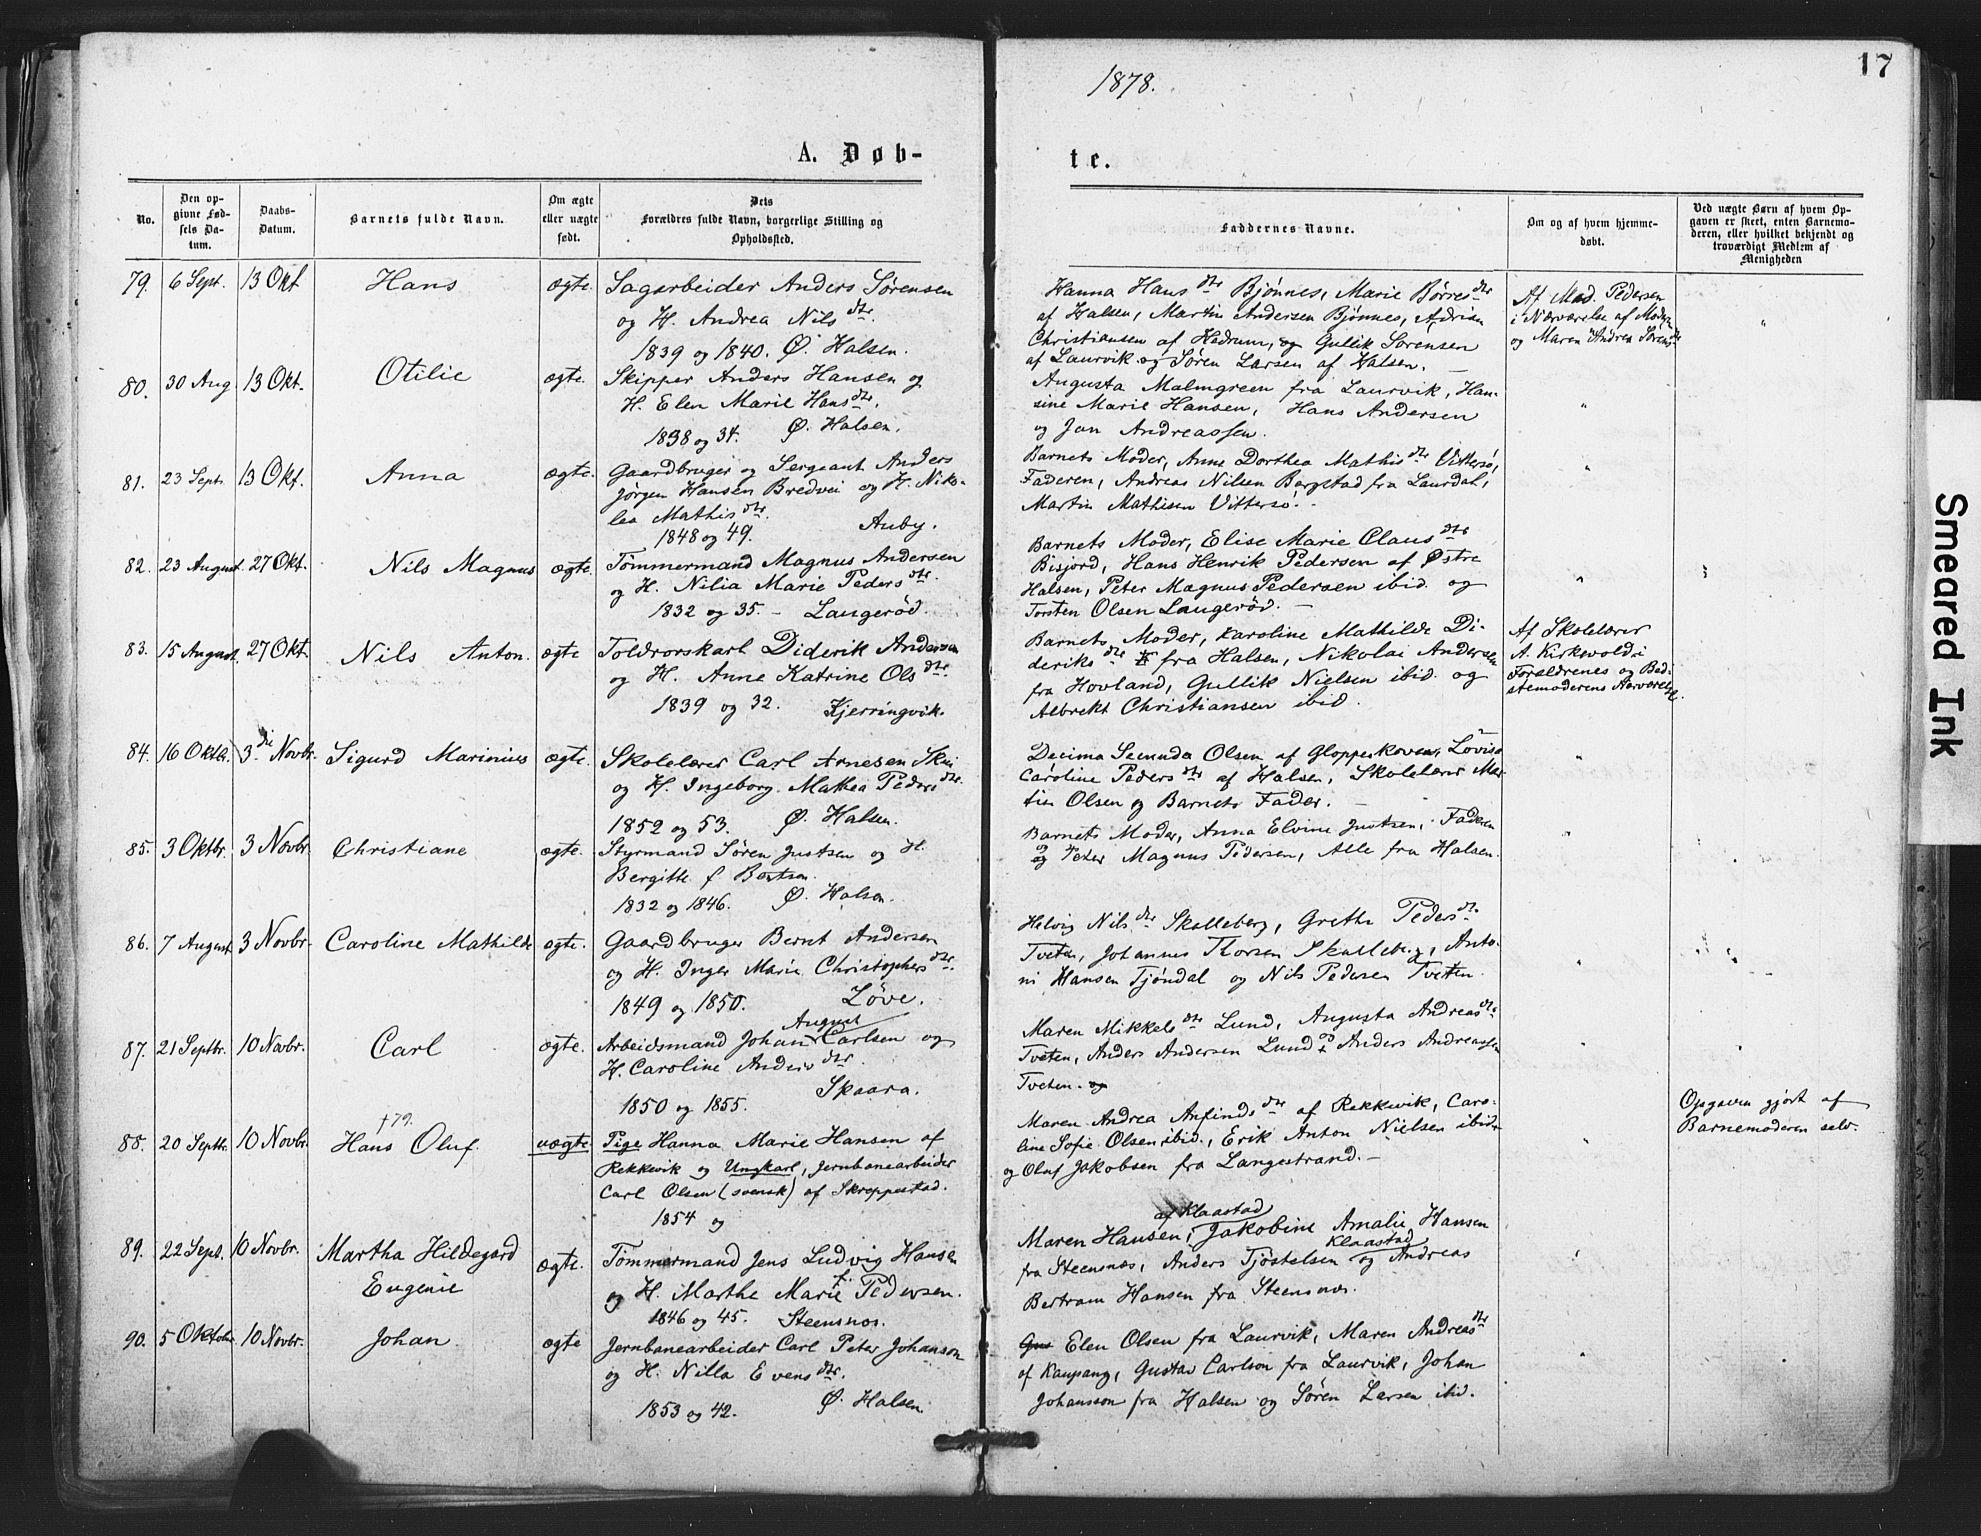 1878.
17
A. Døb-
te.
No.
Den op-
givne Fød-
sels Da-
tum.
Daabs-
Datum.
Barnets fulde Navn.
Om ægte
eller uægte
født.
Dets
Forældres fulde Navn, borgerlige Stilling og
Opholdssted.
Faddernes Navne.
Om og af hvem hjemme-
døbt.
Ved uægte Børn af hvem Op-
gaven er skeet, enten Barnemo-
deren, eller hvilket bekjendt og
troværdigt Medlem af
Menigheden
79. 6 Sept. 13 Okt Hans ægte. Sagarbeider Anders Sørensen
og H. Andrea Nilsdtr.
1839 og 1840. Ø. Halsen.
Hanna Hansdtr Bjønnes, Marie Børresdtr
af Halsen, Martin Andersen Bjønnes, Adrian
Christiansen af Hedrum, og Gullik Sørensen
af Laurvik og Søren Larsen af Halsen.
Af Mad. Pedersen
i Nærværelse af Moderen
og Maren Andrea Sørensdtr
"
80. 30 Aug. 13 Okt. Otilie ægte. Skipper Anders Hansen og
H. Elen Marie Hansdtr.
1838 og 34. Ø. Halsen.
Augusta Malmgreen fra Laurvik, Han-
sine Marie Hansen, Hans Andersen
og Jan Andreassen.
"
81. 23 Sept. 13 Okt. Anna ægte. Gaardbruger og Sergeant Anders
Jørgen Hansen Bredvei og H. Niko-
lea Mathisdtr.
1848 og 49. Auby.
Barnets Moder, Anne Dorthea Mathisdtr Vittersø,
Faderen, Andreas Nilsen Bergstad fra Laurdal,
Martin Mathisen Vittersø.
"
82. 23 August. 27 Okt. Nils Magnus ægte. Tømmermand Magnus Andersen
og H. Nilia Marie Pedersdtr.
1832 og 35. - Langerød.
Barnets Moder, Elise Marie Clausdtr
Bisjord, Hans Henrik Pedersen af Østre
Halsen, Peter Magnus Pedersen ibid. og
Torsten Olsen Langerød. -
"
83. 15 August. 27 Okt. Nils Anton. ægte Toldrorskarl Diderik Andersen
og H. Anne Katrine Olsdtr.
1839 og 32. Kjerringvik.
Barnets Moder, Karoline Mathilde Di-
deriksdtr fra Halsen, Nikolai Andersen
fra Hovland, Gullik Nielsen ibid. og
Albrekt Christiansen ibid.
Af Skolelærer
A. Kirkevold i
Forældrenes og Bed-
stemoderens
84. 16 Oktbr. 3die Novbr. Sigurd Marinius ægte. Skolelærer Carl Arnesen Skui
og H. Ingeborg Mathea Pedersdtr.
1852 og 53. Ø. Halsen.
Decima Secunda Olsen af Glopperkoven, Lovise
Caroline Pedersdtr af Halsen, Skolelærer Mar-
tin Olsen og Barnets Fader. -
"
85. 3 Oktbr. 3 Novbr. Christiane ægte. Styrmand Søren Justsen og H.
Bergitte f. Berntsen.
1832 og 1846. Ø. Halsen.
Barnets Moder, Anna Elvine Justsen, Faderen
og Peter Magnus Pedersen, Alle fra Halsen.
"
86. 7 August. 3 Novbr. Caroline Mathilde ægte. Gaardbruger Bernt Andersen
og H. Inger Marie Christophersdtr.
1849 og 1850. Løve.
Helvig Nilsdtr Skalleberg, Grethe Pedersdtr
Tveten, Johannes Thorsen Skalleberg, Anto-
ni Hansen Tjøndal og Nils Pedersen Tveten.
"
87. 21 Septbr. 10 Novbr. Carl ægte. Arbeidsmand Johan August Carlsen og
H. Caroline Andersdtr.
1850 og 1855. Skaara.
Maren Mikkelsdtr Lund, Augusta Andreasdtr
Tveten, Anders Andersen Lund & Anders Andreassen
Tveten. og
"
88. 20 Septbr. 10 Novbr. †79. Hans Oluf. uægte. Pige Hanna Marie Hansen af
Rekkevik og Ungkarl, Jernbanearbeider
Carl Olsen (svensk) af Skreppestad.
1854 og
Maren Andrea Anfindsdtr af Rekkevik, Caro-
line Sofie Olsen ibid., Erik Anton Nielsen ibid.
og Oluf Jakobsen fra Langestrand. -
"
Opgaven gjort af
Barnemoderen selv.
89. 22 Sept. 10 Novbr. Martha Hildegard
Eugenie ægte. Tømmermand Jens Ludvig Hansen
og H. Marthe Marie f. Pedersen.
1846 og 45. Steensnæs.
Maren Hansen, af Klaastad Jakobine Amalie Hansen
fra Steensnæs, Anders Tjøstelsen Klaastad og Andreas
Bertram Hansen fra Steensnæs.
"
90. 5 Oktober 10 Novbr. Johan. ægte Jernbanearbeider Carl Peter Johanson
og H. Nilla Evensdtr.
1853 og 42. Ø. Halsen.
Gus Elen Olsen fra Laurvik, Maren Andreasdtr
af Kaupang, Gustav Carlson fra Laurvik, Johan
Johansson fra Halsen og Søren Larsen ibid.
"
Smeared Ink